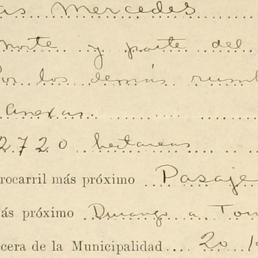 as Mercedes
norte y parte del
Por los demás rumb
Anexas.
2720 hectareas
rocarril más próximo Pasaje
ás próximo Durango a Torr
cera de la Municipalidad 20 k